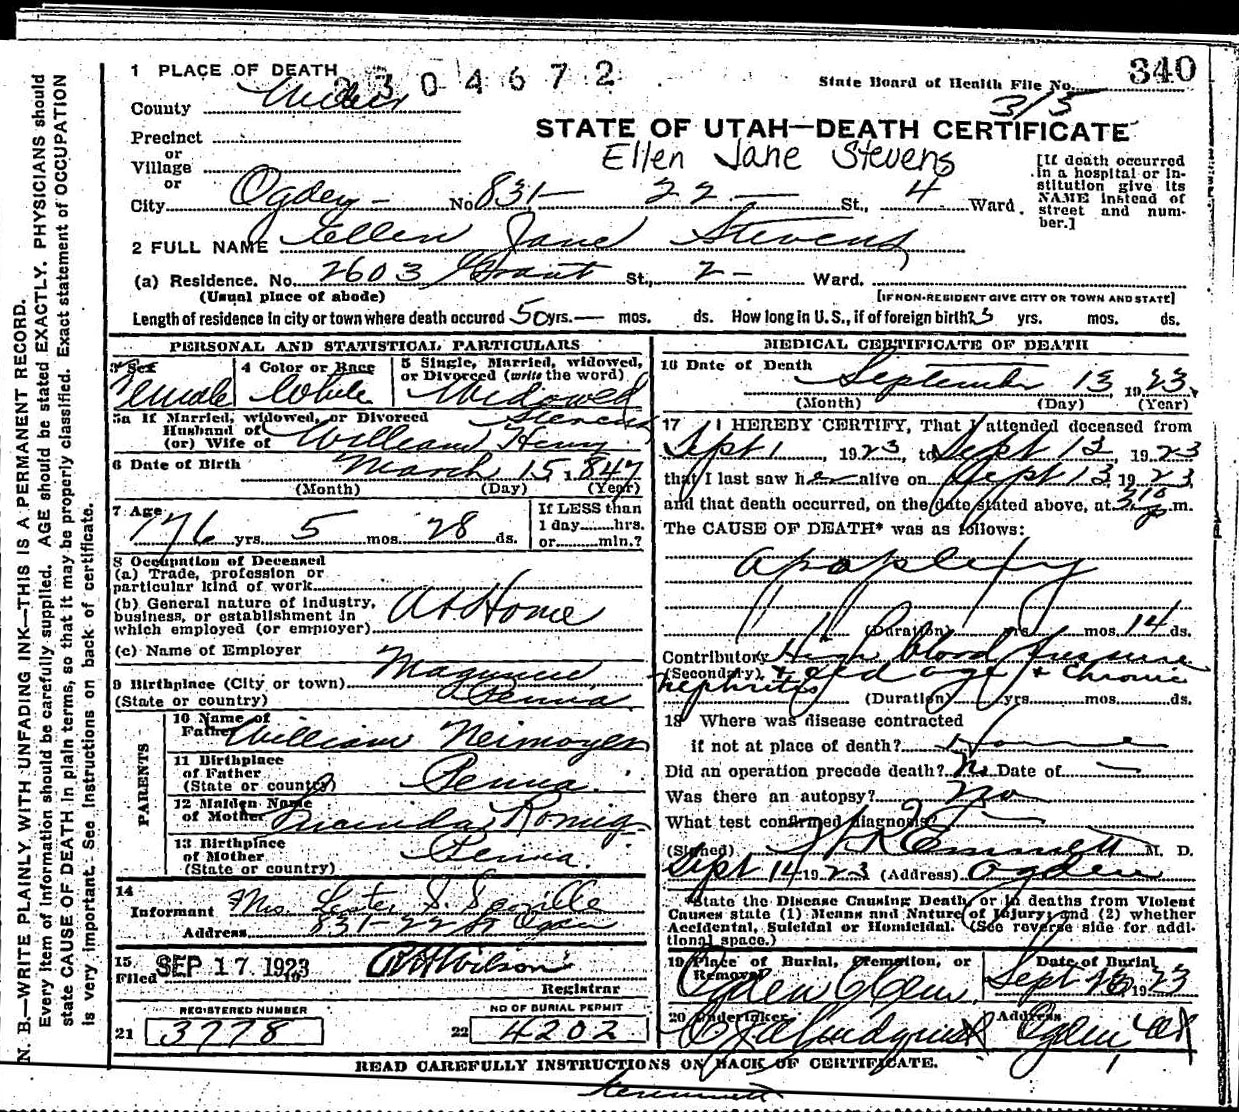 340
1 PLACE OF DEATH 2304672
State Board of Health File No. 315
County Weber
STATE OF UTAH—DEATH CERTIFICATE
Precinct
Ellen Jane Stevens
or
Village
or
City Ogden - No. 831 — 22 — St., 4 Ward.
[If death occurred in a hospital or in-
stitution give its
NAME instead of
street and num-
ber.]
2 FULL NAME Ellen Jane Stevens
(a) Residence. No. 2603 Grant St., 2 - Ward.
(Usual place of abode) [IF NON-RESIDENT GIVE CITY OR TOWN AND STATE]
Length of residence in city or town where death occured 50 yrs. — mos. ds. How long in U. S., if of foreign birth? yrs. mos. ds.
PERSONAL AND STATISTICAL PARTICULARS
3 Sex Female
4 Color or Race White
5 Single, Married, widowed, or Divorced (write the word) Widowed
5a If Married, widowed, or Divorced
Husband of
(or) Wife of William Henry Stevens
6 Date of Birth March 15, 1847
(Month) (Day) (Year)
7 Age 76 yrs. 5 mos. 28 ds.
If LESS than
1 day......hrs.
or......min.?
8 Occupation of Deceased
(a) Trade, profession or
particular kind of work
(b) General nature of industry,
business, or establishment in
which employed (or employer) At Home
(c) Name of Employer
9 Birthplace (City or town)
(State or country) Penna
PARENTS
10 Name of Father William Neimoyer
11 Birthplace
of Father
(State or country) Penna.
12 Maiden Name
of Mother Romig
13 Birthplace
of Mother
(State or country) Penna.
14
Informant Mrs. Lester S. Scoville
Address 831-22 St Ogden
15
Filed SEP 17 1923 Wilson
Registrar
REGISTERED NUMBER
21 3778
NO OF BURIAL PERMIT
22 4202
MEDICAL CERTIFICATE OF DEATH
16 Date of Death
September 13 1923
(Month) (Day) (Year)
17 I HEREBY CERTIFY, That I attended deceased from
Sept 1, 1923, to Sept 13, 1923
that I last saw her alive on Sept 13, 1923,
and that death occurred, on the date stated above, at m.
The CAUSE OF DEATH* was as follows:
Apoplexy
(Duration) yrs. mos. 14 ds.
Contributory High blood pressure
(Secondary) + old age + chronic
nephritis (Duration) yrs. mos. ds.
18 Where was disease contracted
if not at place of death? Home
Did an operation precede death? No Date of —
Was there an autopsy? No
What test confirmed diagnosis? —
(Signed) Emmett M. D.
Sept 14 1923 (Address) Ogden
*State the Disease Causing Death, or in deaths from Violent
Causes state (1) Means and Nature of Injury; and (2) whether
Accidental, Suicidal or Homicidal. (See reverse side for addi-
tional space.)
19 Place of Burial, Cremation, or
Removal
Ogden Cem.
Date of Burial
Sept 1923
20 Undertaker
Address
Ogden Ut
READ CAREFULLY INSTRUCTIONS ON BACK OF CERTIFICATE.
N. B.—WRITE PLAINLY, WITH UNFADING INK—THIS IS A PERMANENT RECORD.
Every item of information should be carefully supplied. AGE should be stated EXACTLY. PHYSICIANS should
state CAUSE OF DEATH in plain terms, so that it may be properly classified. Exact statement of OCCUPATION
is very important. See instructions on back of certificate.